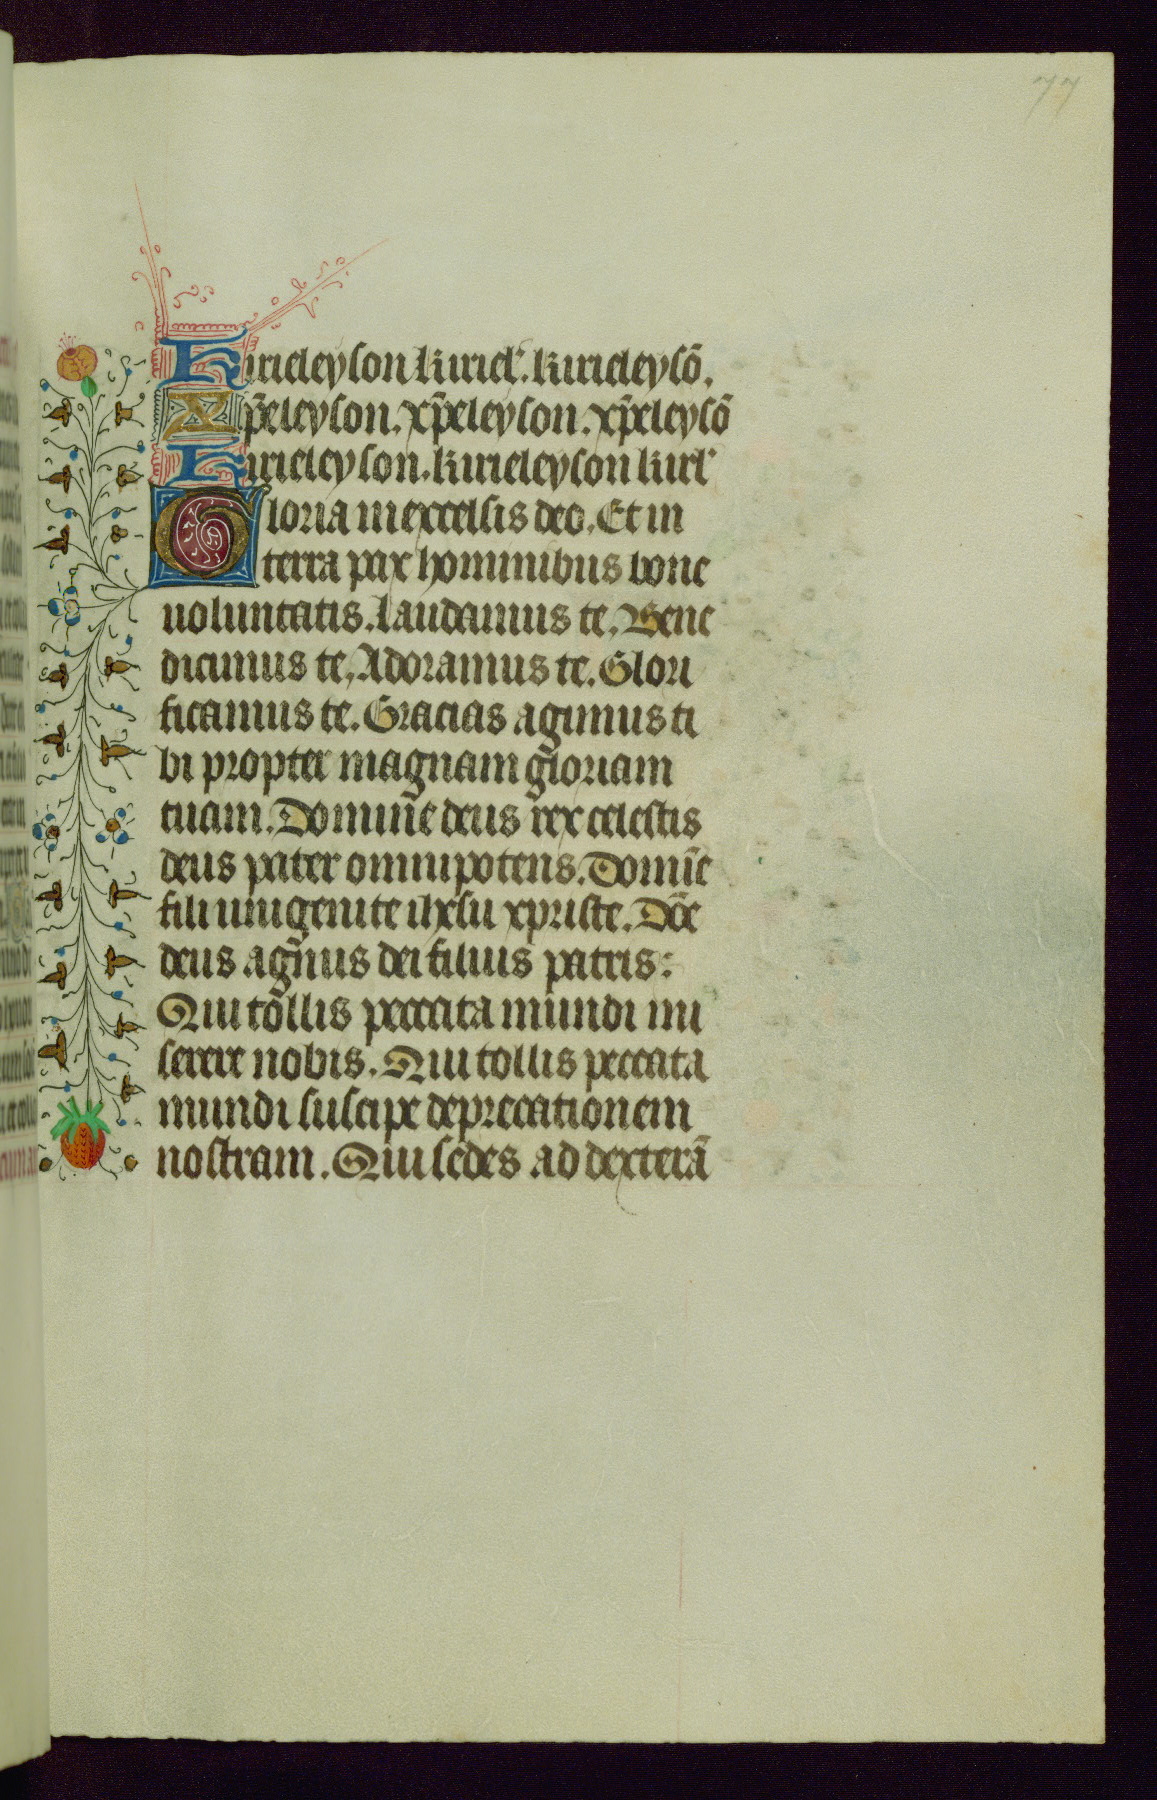 77
Kirieleyson kiriel'. kirieleysō.
Xp̄eleyson. xp̄eleyson. xp̄eleysō
Kirieleyson. kirieleyson kirl'
Gloria in excelsis deo. Et in
terra pax hominibus bone
uoluntatis. Laudamus te. Bene
dicimus te. Adoramus te. Glori
ficamus te. Gracias agimus ti
bi propter magnam gloriam
tuam. Domine deus rex celestis
deus pater omnipotens. Domīe
fili unigenite ihesu xpriste. Dn̄e
deus agnus dei filius patris:
Qui tollis peccata mundi mi
serere nobis. Qui tollis peccata
mundi suscipe deprecationem
nostram. Qui sedes ad dexterā